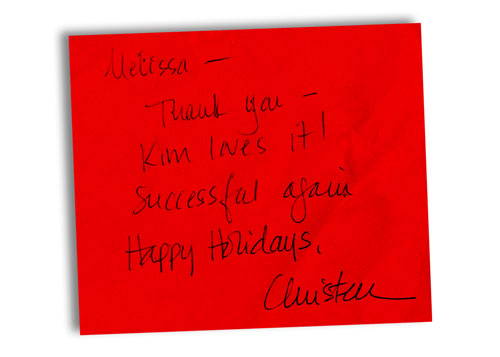 Melissa —
Thank you —
Kim loves it!
Successful again
Happy Holidays.
Christen